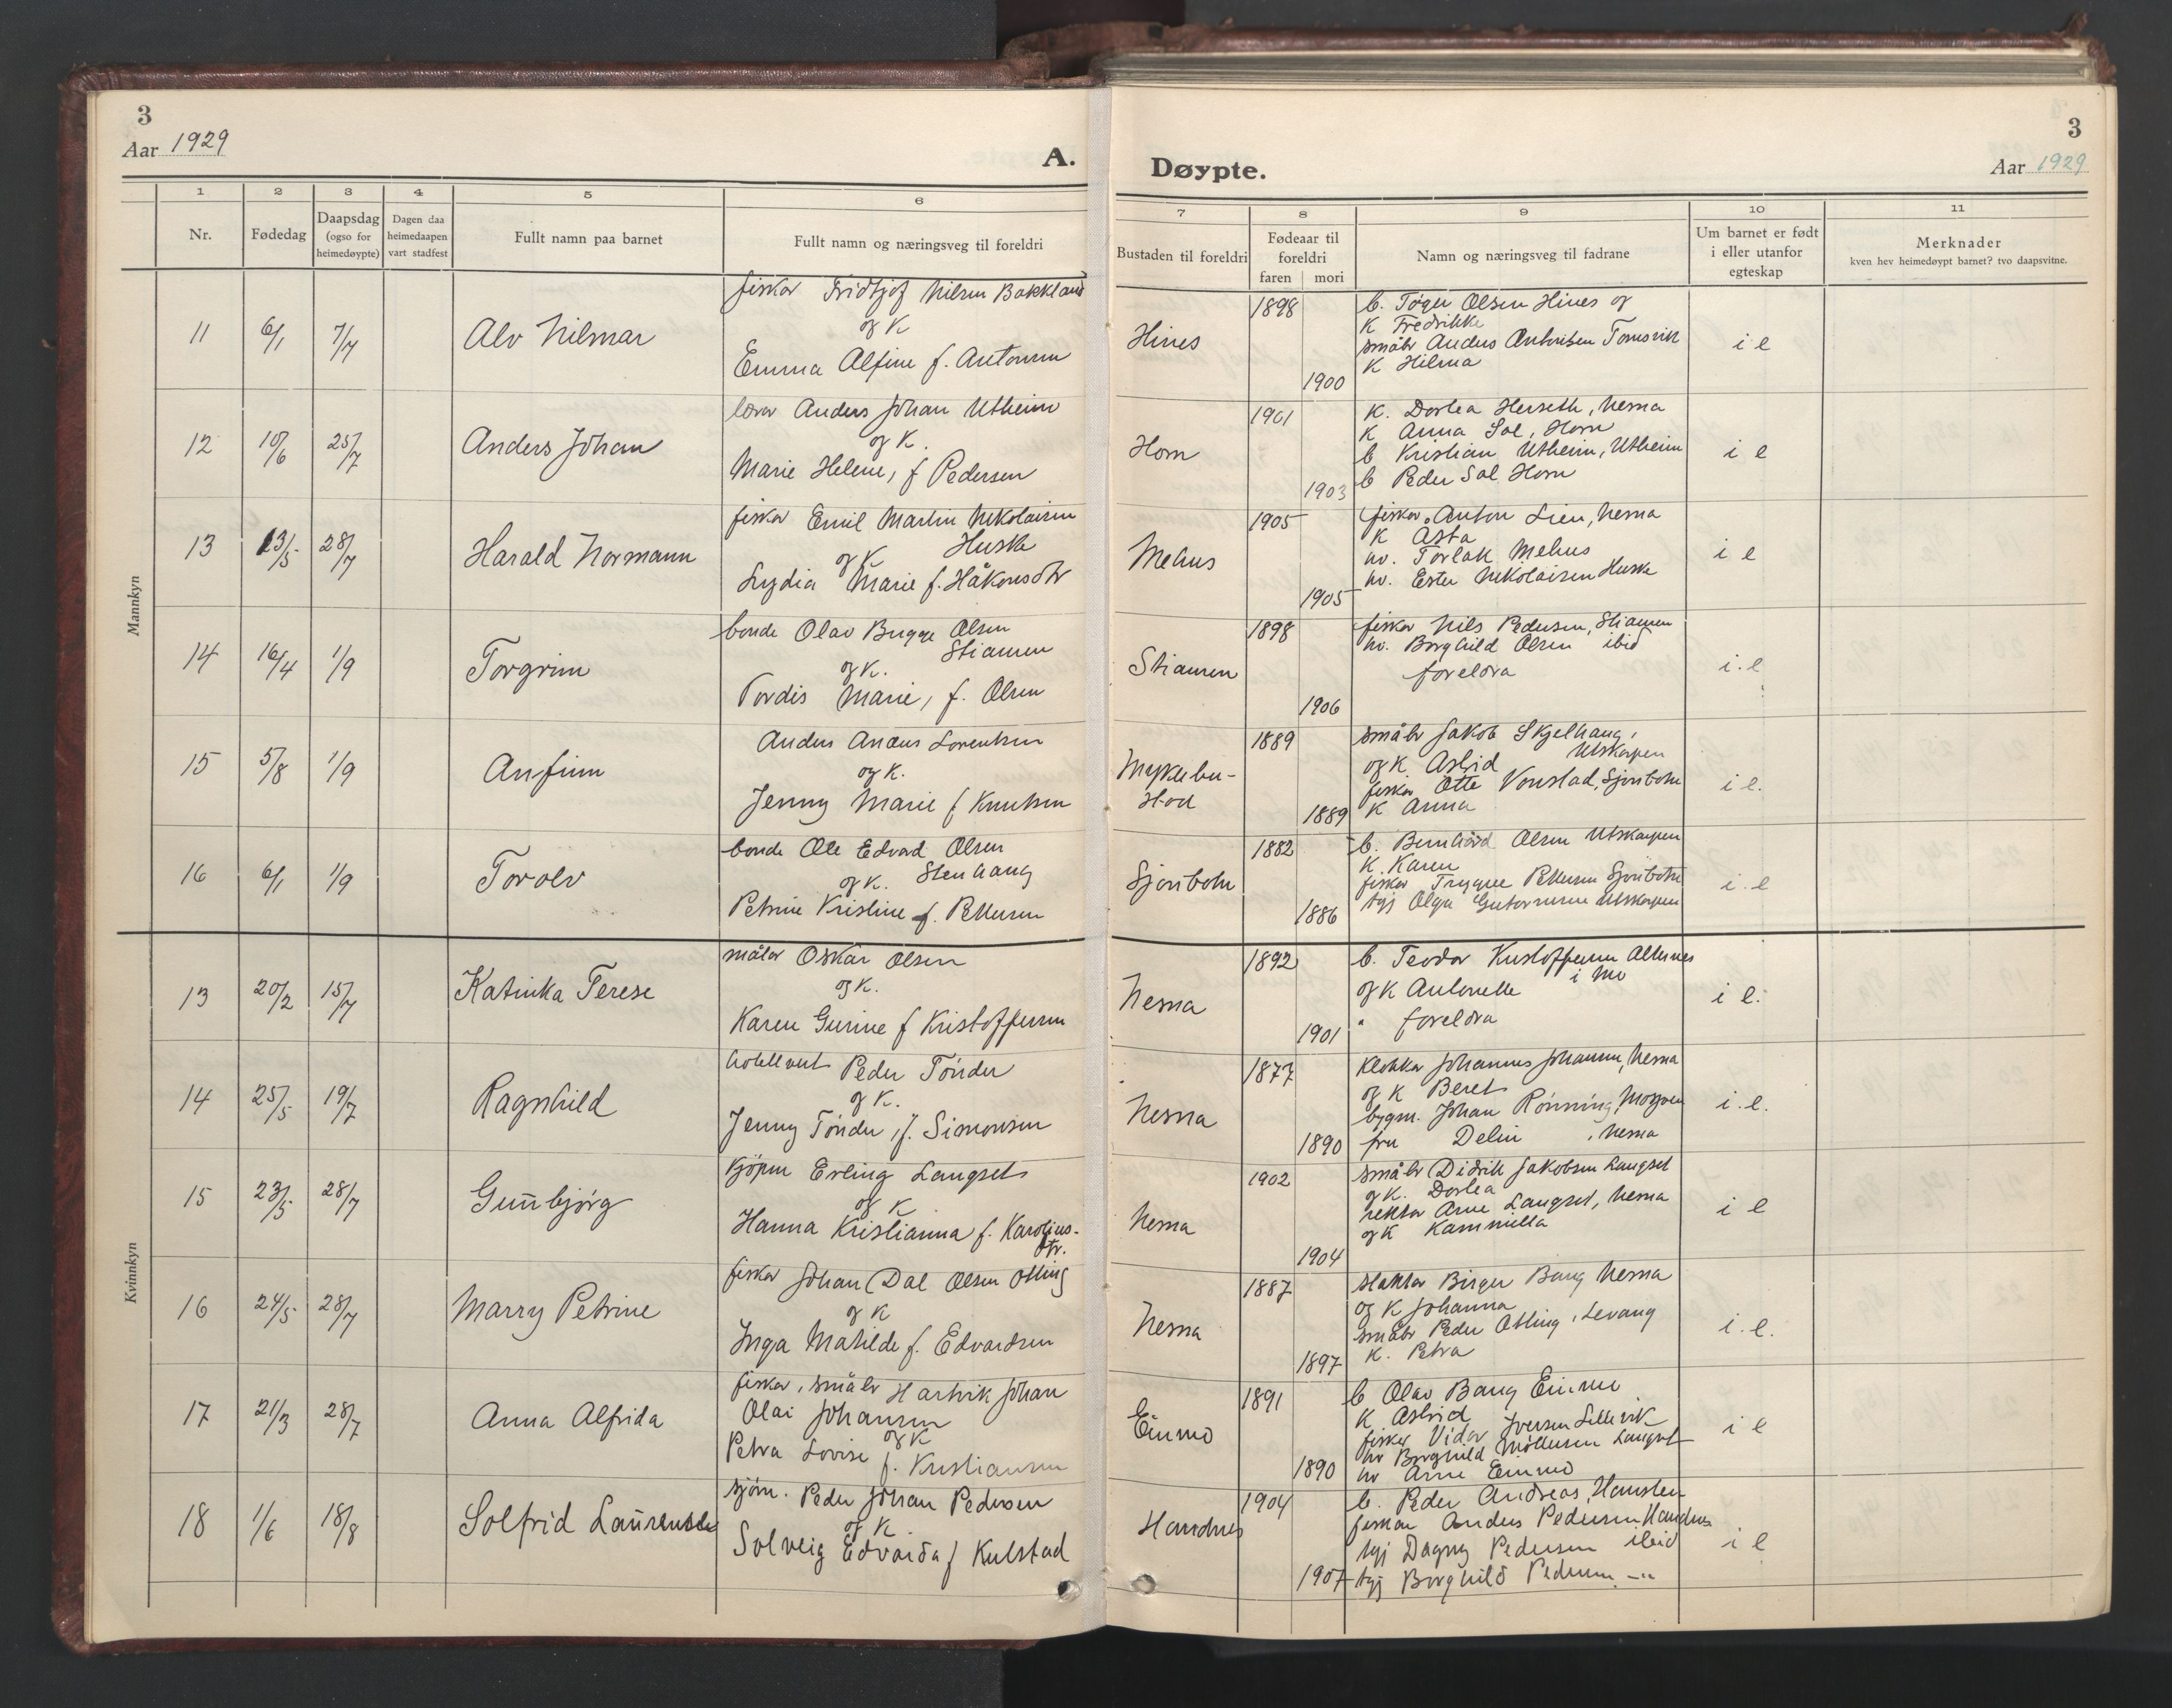 3
Aar 1929
A.
1 2 3 4 5 6
Nr. Fødedag Daapsdag (ogso for heimedøypte) Dagen daa heimedaapen vart stadfest Fullt namn paa barnet Fullt namn og næringsveg til foreldri
Mannkyn
11 6/1 7/7 Alv Hilmar
fiskar Fridtjof Nilsen Bakkland
og K
Emma Alfine f. Antonsen
12 10/6 25/7 Anders Johan
lærar Anders Johan Utheim
og K.
Marie Helene, f Pedersen
13 13/5 28/7 Harald Normann
fiskar Emil Martin Nikolaisen
Huske
og K
Lydia Marie f. Håkonsdtr
14 16/4 1/9 Torgrim
bonde Olav Bugge Olsen
Stiansen
og K.
Tordis Marie, f. Olsen
15 5/8 1/9 Anfinn
Anders Andreas Lorentsen
og K.
Jenny Marie f Knutsen
16 6/1 1/9 Torolv
bonde Ole Edvard Olsen
Stenhaug
og K.
Petrine Kristine f. Pettersen
Kvinnkyn
13 20/2 15/7 Katinka Terese
målar Oskar Olsen
og K.
Karen Gurine f Kristoffersen
14 25/5 19/7 Ragnhild
hotellvert Peder Tönder
og K.
Jenny Tönder, f. Simonsen
15 23/5 28/7 Gunbjörg
kjöpm Erling Langset
og K
Hanna Kristianna f. Karolius-
dtr.
16 24/5 28/7 Marry Petrine
fiskar Johan Dal Olsen Otting
og K
Inga Matilde f. Edvardsen
17 21/3 28/7 Anna Alfrida
fiskar, småbr Hartvik Johan
Olai Johansen
og K
Petra Lovise f. Kristiansen
18 1/6 18/8 Solfrid Laurentse
sjøm. Peder Johan Pedersen
og K
Solveig Edvarda f Kulstad
3
Døypte.
Aar 1929
7 8 9 10 11
Bustaden til foreldri Fødeaar til foreldri faren mori Namn og næringsveg til fadrane Um barnet er født i eller utanfor egteskap Merknader kven hev heimedøypt barnet? tvo daapsvitne.
Hines 1898 1900
b. Töger Olsen Hines og
K Fredrikke
småbr Anders Antonsen Tomsvik
K Hilma
i e
Horn 1901 1903
K. Dortea Herseth, Nesna
K Anna Sol, Horn
b Kristian Utheim, Utheim
b Peder Sol Horn
i e
Mehus 1905 1905
fiskar Anton Lien, Nesna
K Asta
uv. Torlak Mehus
uv. Ester Nikolaisen Huske
i e
Stiansen 1898 1906
fiskar Nils Pedersen, Stiansen
uv. Borghild Olsen ibid
foreldra
i. e
Myklebu-
stad 1889 1889
småbr Jakob Skjelhaug,
Utskarpen
og K Astrid
fiskar Otte Vonstad, Sjonbotn
K Anna
i e.
Sjonbotn 1882 1886
b. Bernhard Olsen Utskarpen
K. Karen
fiskar Trygve Pettersen Sjonbotn
tgj Olga Gustavsen Utskarpen
i. e
Nesna 1892 1901
b. Teodor Kristoffersen Alternes
i Mo
og K Antonette
" foreldra
i e.
Nesna 1877 1890
klokkar Johannes Johansen, Nesna
og K Beret
bygm. Johan Rönning, Mosjøen
fru Delin, Nesna
i. e.
Nesna 1902 1904
småbr Didrik Jakobsen Langset
og K. Dortea
rektor Arne Langset, Nesna
og K Kammilla
i e
Nesna 1887 1897
slaktar Birger Bang Nesna
og K Johanna
småbr Peder Otting, Levang
K. Petra
i. e.
Einmo 1891 1890
b Olav Bang Einmo
K Astrid
fiskar Vidar Iversen Lillevik
uv Borghild Möllersen Langset
uv Arne Einmo
i e
Handnes 1904 1907
b. Peder Andreas, Hamsten
fiskar Anders Pedersen Handnes
tgj Dagny Pedersen ibid
tgj Borghild Pedersen —"
i e